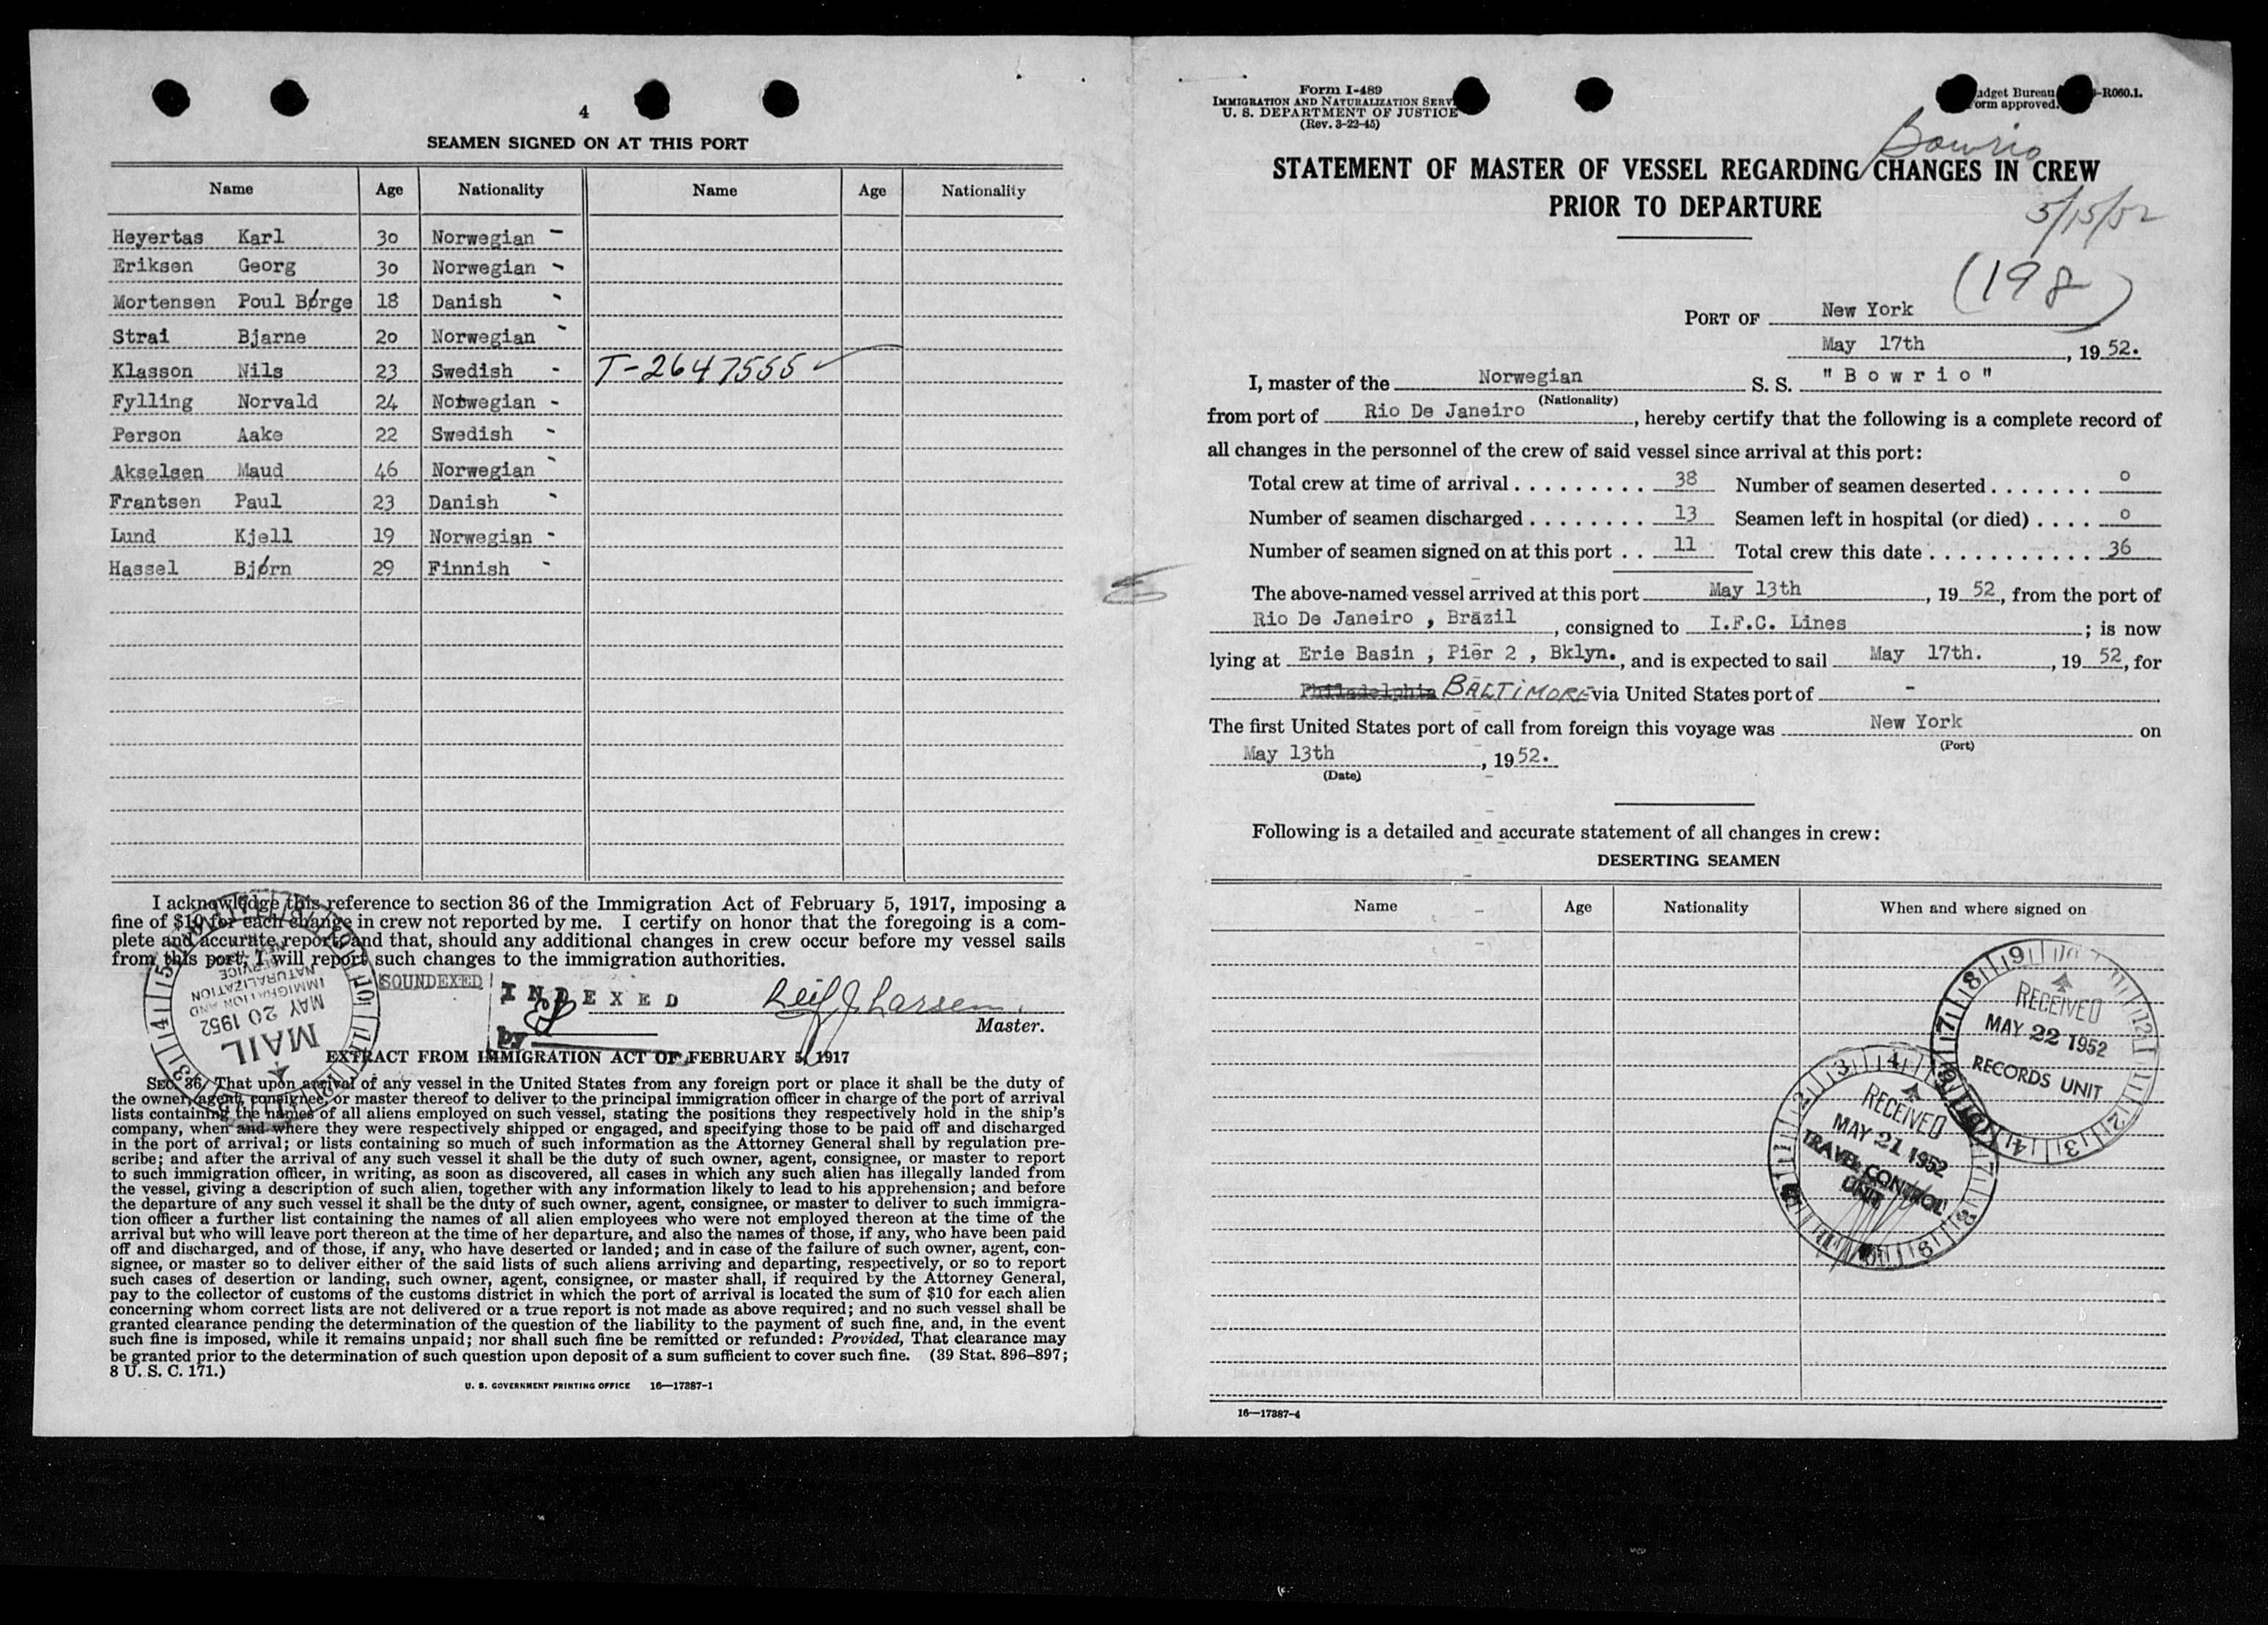 4
SEAMEN SIGNED ON AT THIS PORT
Name Age Nationality Name Age Nationality
Heyertas Karl 30 Norwegian -
Eriksen Georg 30 Norwegian -
Mortensen Poul Børge 18 Danish -
Strai Bjarne 20 Norwegian -
Klasson Nils 23 Swedish - T-2647555 ✓
Fylling Norvald 24 Norwegian -
Person Aake 22 Swedish -
Akselsen Maud 46 Norwegian -
Frantsen Paul 23 Danish -
Lund Kjell 19 Norwegian -
Hassel Bjørn 29 Finnish -
I acknowledge this reference to section 36 of the Immigration Act of February 5, 1917, imposing a
fine of $10 for each change in crew not reported by me. I certify on honor that the foregoing is a com-
plete and accurate report, and that, should any additional changes in crew occur before my vessel sails
from this port, I will report such changes to the immigration authorities.
SOUNDEXED
INDEXED
by
Leif J Larsen.
Master.
IMMIGRATION AND
NATURALIZATION
SERVICE
MAY 20 1952
MAIL
EXTRACT FROM IMMIGRATION ACT OF FEBRUARY 5, 1917
SEC. 36. That upon arrival of any vessel in the United States from any foreign port or place it shall be the duty of
the owner, agent, consignee, or master thereof to deliver to the principal immigration officer in charge of the port of arrival
lists containing the names of all aliens employed on such vessel, stating the positions they respectively hold in the ship's
company, when and where they were respectively shipped or engaged, and specifying those to be paid off and discharged
in the port of arrival; or lists containing so much of such information as the Attorney General shall by regulation pre-
scribe; and after the arrival of any such vessel it shall be the duty of such owner, agent, consignee, or master to report
to such immigration officer, in writing, as soon as discovered, all cases in which any such alien has illegally landed from
the vessel, giving a description of such alien, together with any information likely to lead to his apprehension; and before
the departure of any such vessel it shall be the duty of such owner, agent, consignee, or master to deliver to such immigra-
tion officer a further list containing the names of all alien employees who were not employed thereon at the time of the
arrival but who will leave port thereon at the time of her departure, and also the names of those, if any, who have been paid
off and discharged, and of those, if any, who have deserted or landed; and in case of the failure of such owner, agent, con-
signee, or master so to deliver either of the said lists of such aliens arriving and departing, respectively, or so to report
such cases of desertion or landing, such owner, agent, consignee, or master shall, if required by the Attorney General,
pay to the collector of customs of the customs district in which the port of arrival is located the sum of $10 for each alien
concerning whom correct lists are not delivered or a true report is not made as above required; and no such vessel shall be
granted clearance pending the determination of the question of the liability to the payment of such fine, and, in the event
such fine is imposed, while it remains unpaid; nor shall such fine be remitted or refunded: Provided, That clearance may
be granted prior to the determination of such question upon deposit of a sum sufficient to cover such fine. (39 Stat. 896–897;
8 U. S. C. 171.)
U. S. GOVERNMENT PRINTING OFFICE 16—17387-1
Form I-489
IMMIGRATION AND NATURALIZATION SERV
U. S. DEPARTMENT OF JUSTICE
(Rev. 3-22-45)
udget Bureau -R060.1.
orm approved.
Bowrio
STATEMENT OF MASTER OF VESSEL REGARDING CHANGES IN CREW
PRIOR TO DEPARTURE
5/15/52
(198)
PORT OF New York
May 17th, 1952.
I, master of the Norwegian S. S. "Bowrio"
(Nationality)
from port of Rio De Janeiro, hereby certify that the following is a complete record of
all changes in the personnel of the crew of said vessel since arrival at this port:
Total crew at time of arrival . . . . . . . . . . 38 Number of seamen deserted . . . . . . . 0
Number of seamen discharged . . . . . . . . 13 Seamen left in hospital (or died) . . . . 0
Number of seamen signed on at this port . . 11 Total crew this date . . . . . . . . . . . . 36
The above-named vessel arrived at this port May 13th, 1952, from the port of
Rio De Janeiro , Brazil, consigned to I.F.C. Lines; is now
lying at Erie Basin , Pier 2 , Bklyn., and is expected to sail May 17th., 1952, for
Philadelphia BALTIMORE via United States port of -
The first United States port of call from foreign this voyage was New York on
(Port)
May 13th, 1952.
(Date)
Following is a detailed and accurate statement of all changes in crew:
DESERTING SEAMEN
Name Age Nationality When and where signed on
RECEIVED
MAY 22 1952
RECORDS UNIT
RECEIVED
MAY 21 1952
TRAVEL CONTROL
UNIT
16—17387-4